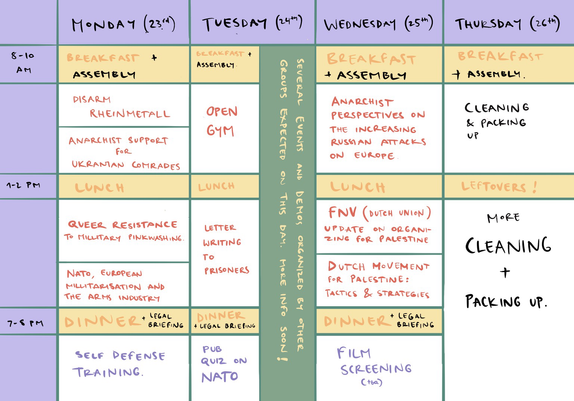 MONDAY (23rd)
TUESDAY (24th)
WEDNESDAY (25th)
THURSDAY (26th)
8-10
AM
BREAKFAST +
ASSEMBLY
BREAKFAST +
ASSEMBLY.
BREAKFAST
+ ASSEMBLY
BREAKFAST
+ ASSEMBLY.
DISARM
RHEINMETALL
ANARCHIST SUPPORT
FOR
UKRANIAN COMRADES
OPEN
GYM
SEVERAL EVENTS AND DEMOS ORGANIZED BY OTHER
GROUPS EXPECTED ON THIS DAY. MORE INFO SOON!
ANARCHIST
PERSPECTIVES ON
THE INCREASING
RUSSIAN ATTACKS
ON EUROPE
CLEANING
& PACKING
UP
1-2 PM
LUNCH
LUNCH
LUNCH
LEFTOVERS!
QUEER RESISTANCE
TO MILLITARY PINKWASHING.
NATO, EUROPEAN
MILLITARISATION AND
THE ARMS INDUSTRY
LETTER
WRITING
TO
PRISONERS
FNV (DUTCH UNION)
UPDATE ON ORGANI-
ZING FOR PALESTINE
DUTCH MOVEMENT
FOR PALESTINE:
TACTICS & STRATEGIES
MORE
CLEANING
+
PACKING UP.
7-8 PM
DINNER + LEGAL
BRIEFING
DINNER
+ LEGAL BRIEFING
DINNER + LEGAL
BRIEFING
SELF DEFENSE
TRAINING.
PUB
QUIZ ON
NATO
FILM
SCREENING
(tba)